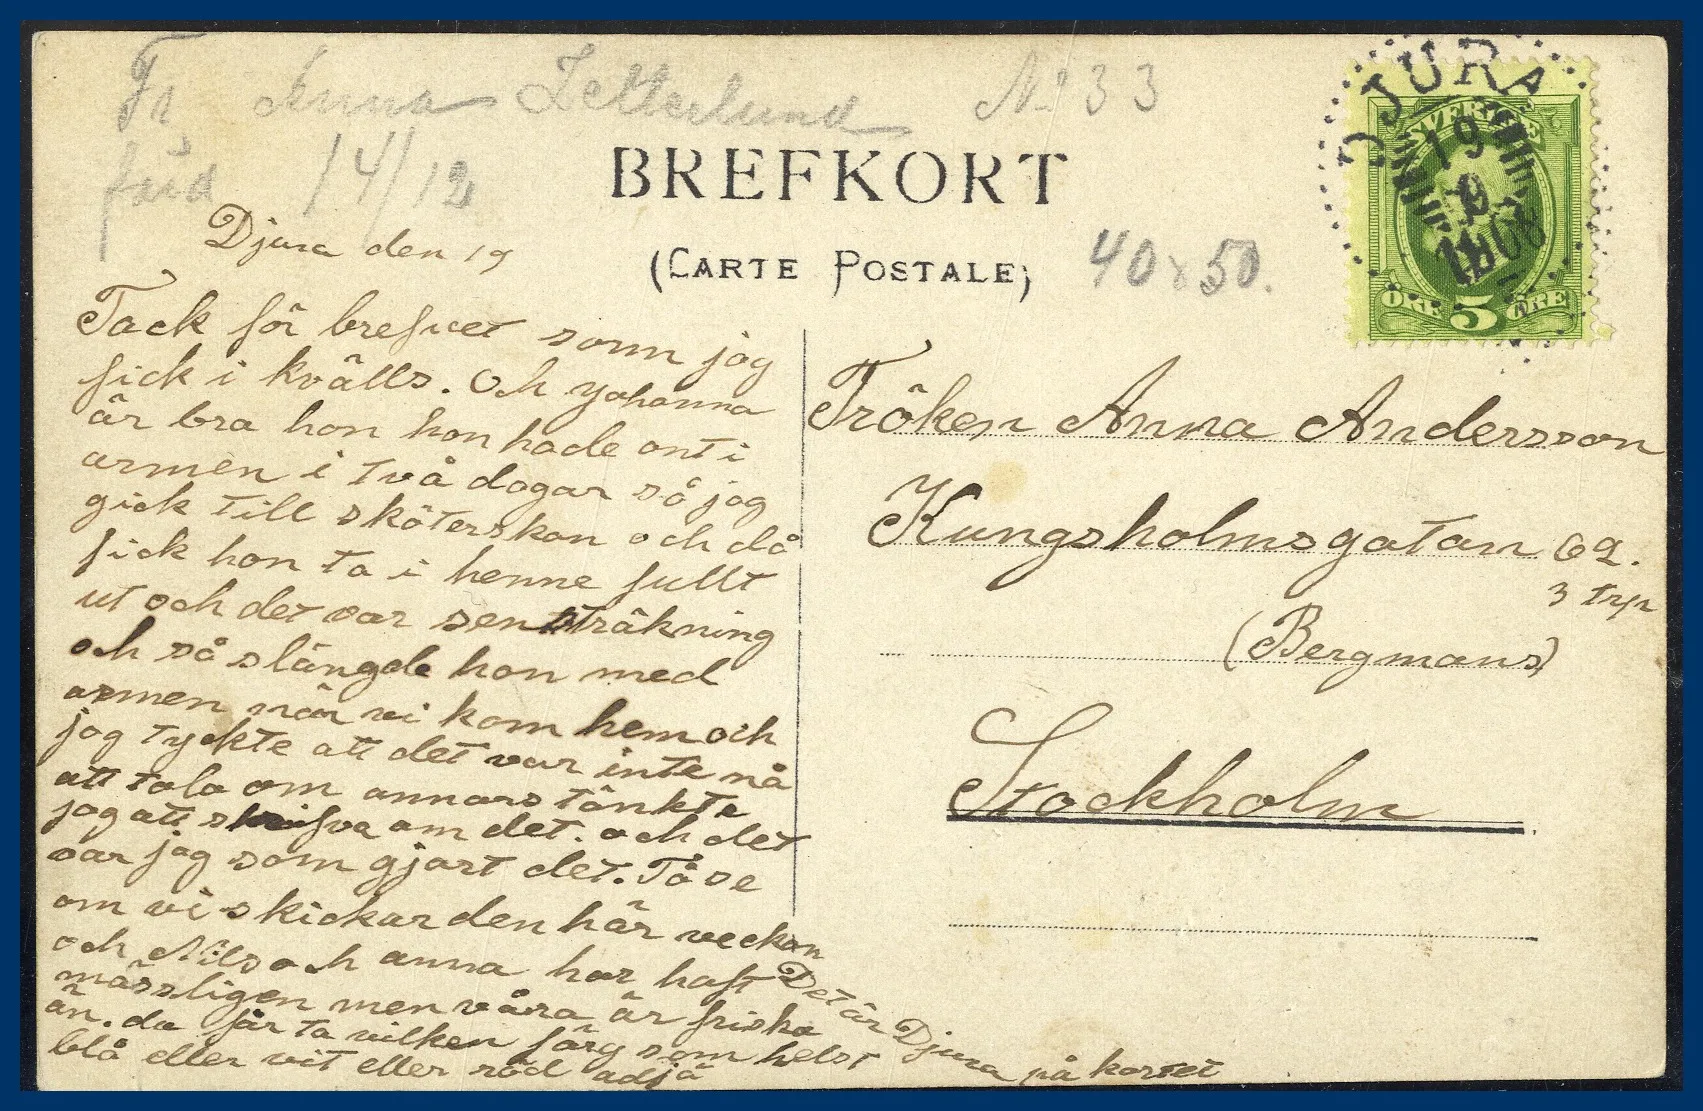 Fr Anna Zetterlund No 33
född 14/12
BREFKORT
(CARTE POSTALE)
40 x 50.
DJURA
19
9
1908
SVERIGE
ÖRE 5 ÖRE
Djura den 19
Tack för brefvet som jag
fick i kvälls. Och Johanna
är bra hon hon hade ont i
armen i två dagar så jag
gick till sköterskan och då
fick hon ta i henne fullt
ut och det var sensträkning
och så slängde hon med
armen när vi kom hem och
jag tyckte att det var inte nå
att tala om annars tänkte
jag att skrifva om det. och det
var jag som gjort det. Få se
om vi skickar den här veckan
och Nils och anna har haft
mässligen men våra är friska
än. du får ta vilken färg som helst
blå eller vit eller röd adjö
Det är Djura på kortet
Fröken Anna Andersson
Kungsholmsgatan 62.
3 trp
(Bergmans)
Stockholm